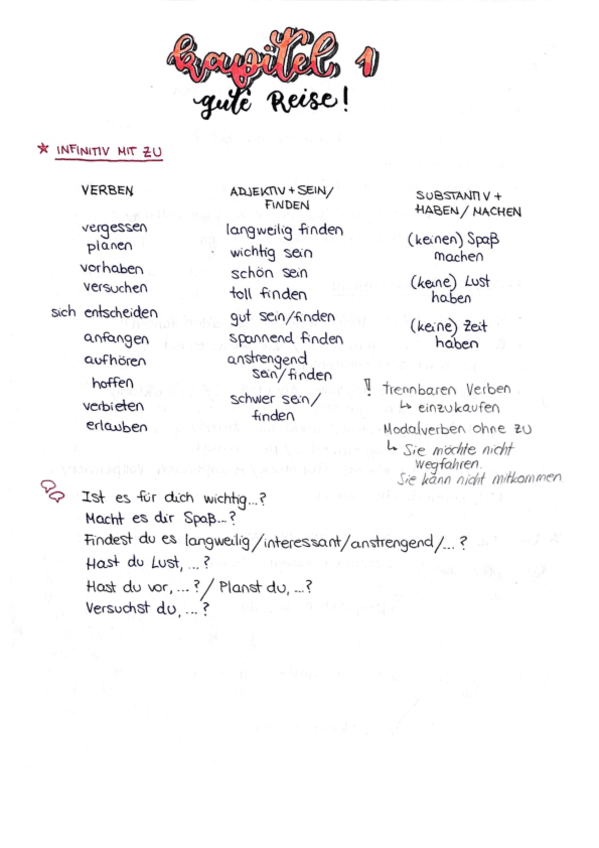 Kapitel 1
gute Reise!
* INFINITIV MIT ZU
VERBEN
vergessen
planen
vorhaben
versuchen
sich entscheiden
anfangen
aufhören
hoffen
verbieten
erlauben
ADJEKTIV + SEIN/
FINDEN
langweilig finden
wichtig sein
schön sein
toll finden
gut sein/finden
spannend finden
anstrengend
sein/finden
schwer sein/
finden
SUBSTANTIV +
HABEN/MACHEN
(keinen) Spaß
machen
(keine) Lust
haben
(keine) Zeit
haben
! trennbaren Verben
↳ einzukaufen
Modalverben ohne ZU
↳ Sie möchte nicht
wegfahren.
Sie kann nicht mitkommen
Ist es für dich wichtig...?
Macht es dir Spaß...?
Findest du es langweilig/interessant/anstrengend/...?
Hast du Lust, ...?
Hast du vor, ...? / Planst du, ...?
Versuchst du, ...?